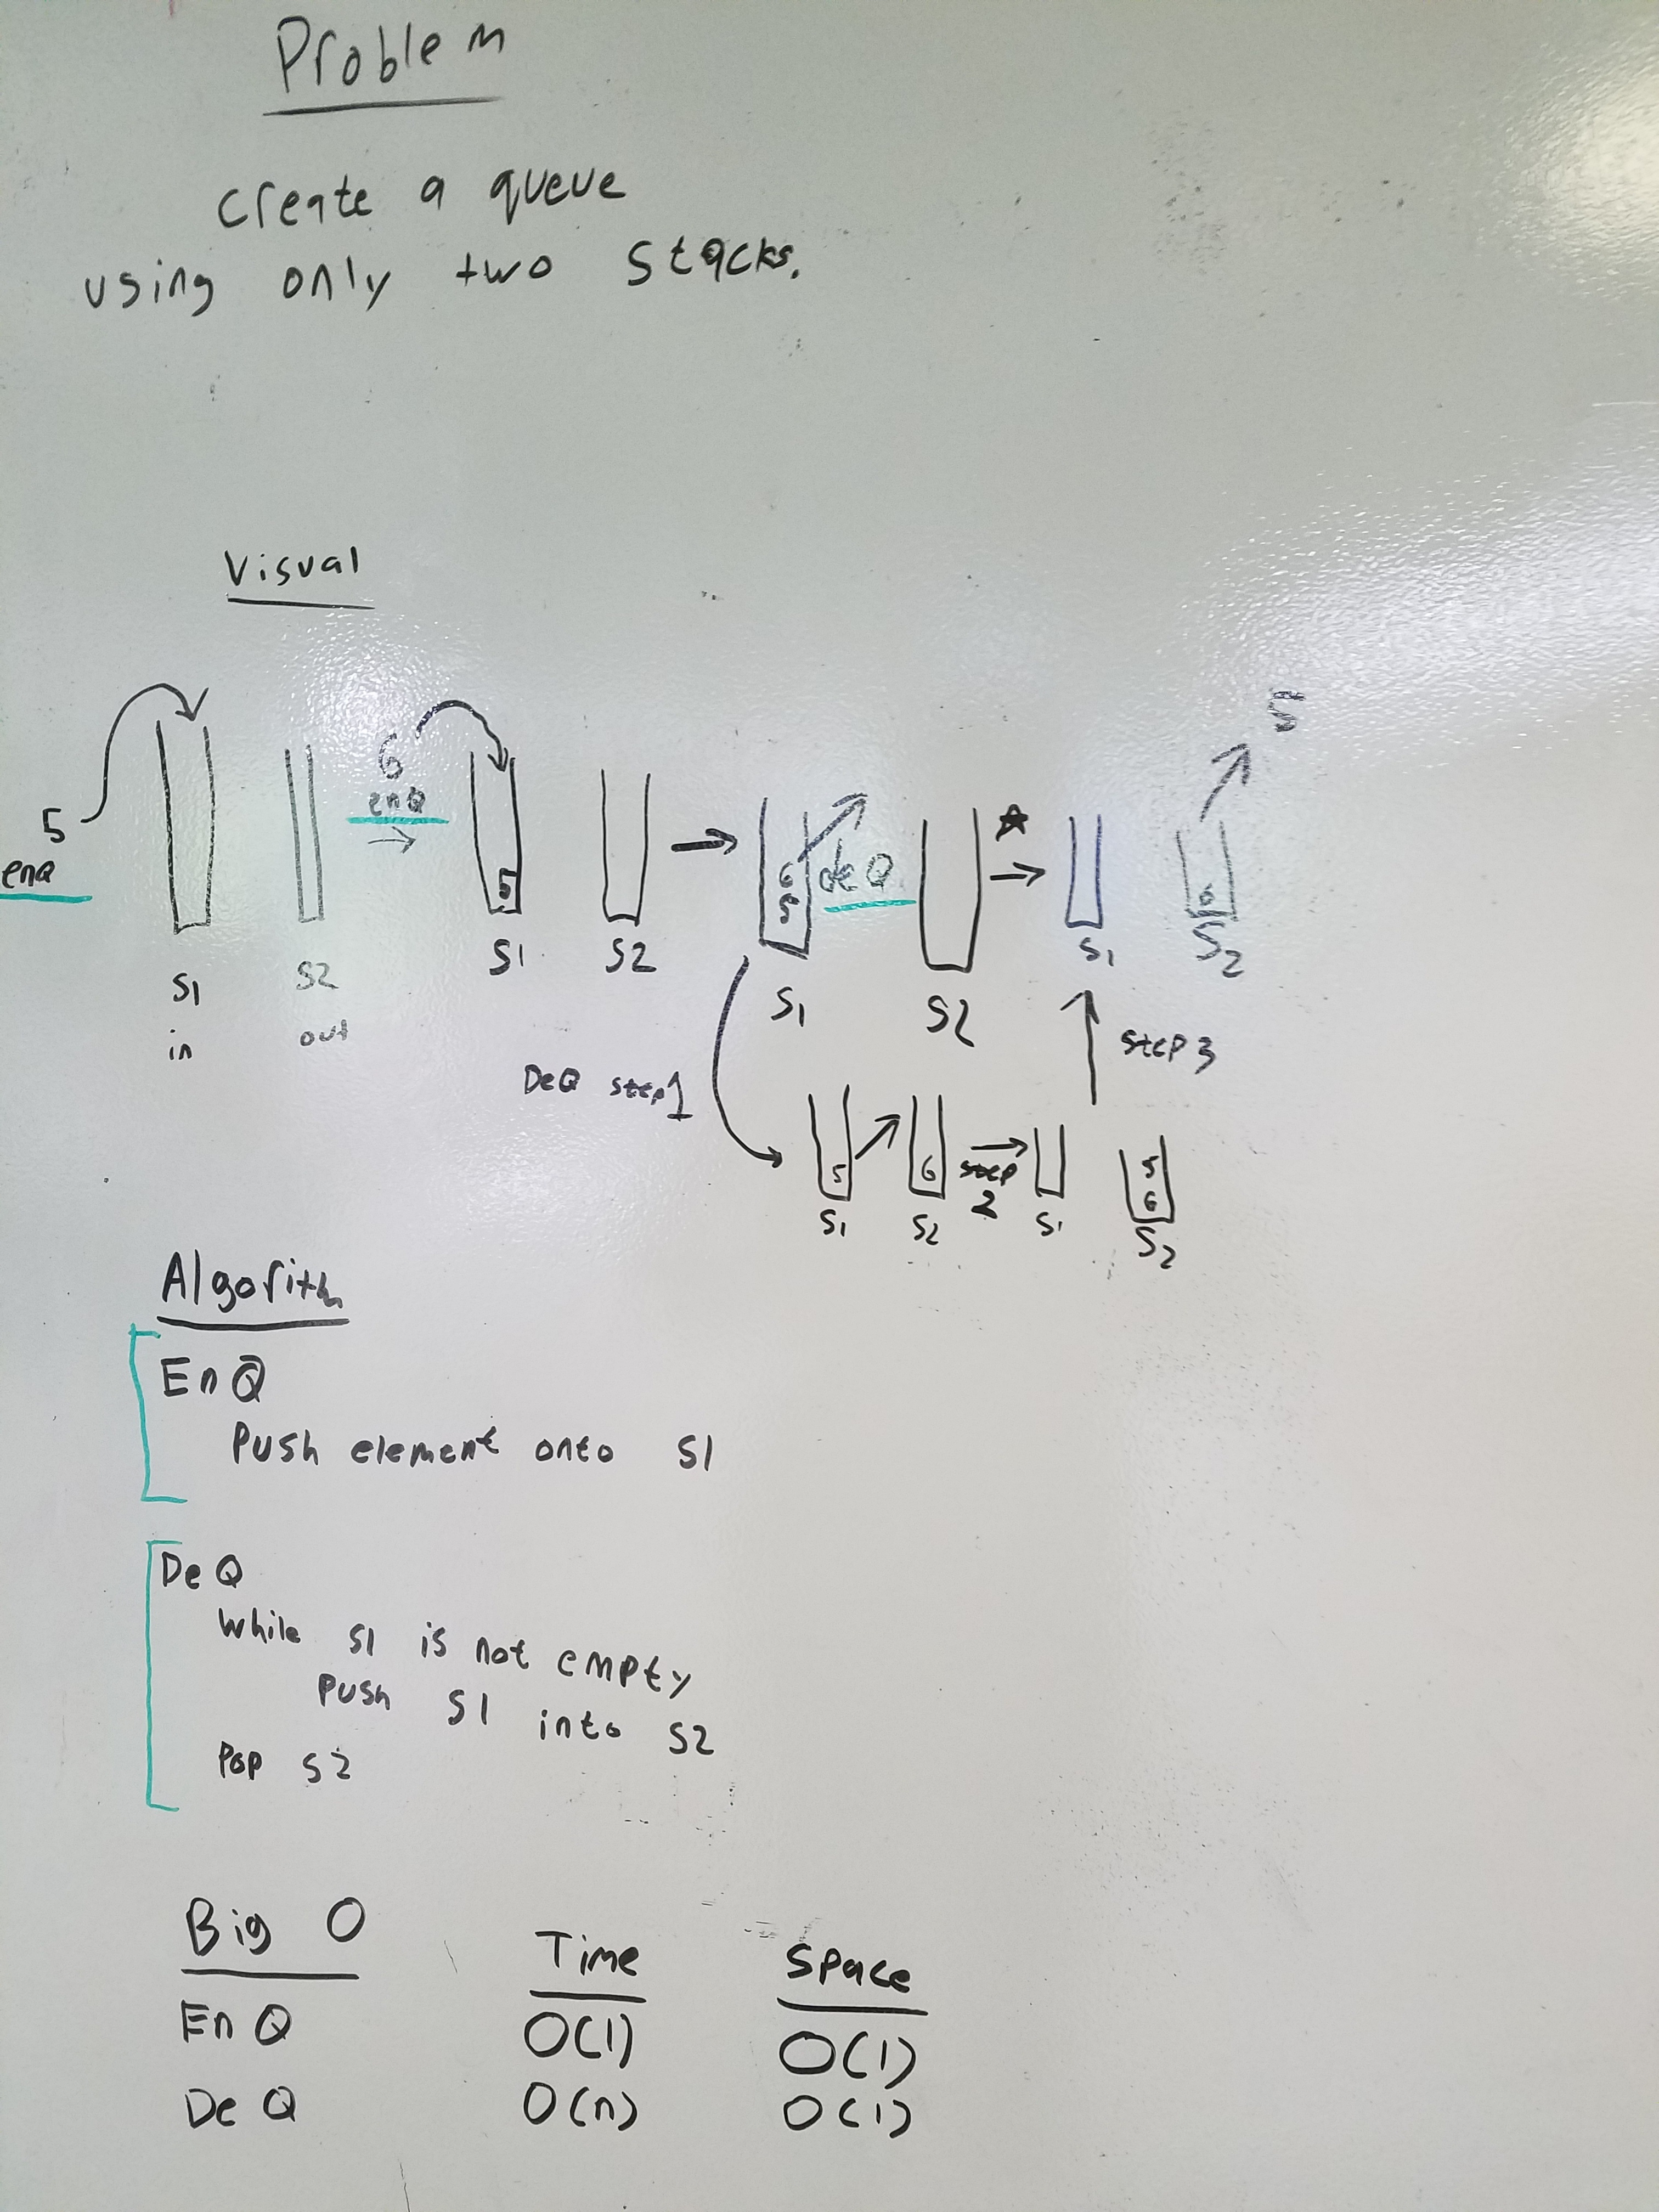 Problem
create a queue
using only two stacks.
Visual
5
enQ
S1
in
S2
out
6
enQ
5
S1
S2
6
5
S1
deQ
S2
S1
5
6
S2
DeQ step1
5
S1
6
S2
step
2
S1
5
6
S2
step 3
Algorith
EnQ
Push element onto S1
DeQ
While S1 is not empty
Push S1 into S2
Pop S2
Big O Time Space
EnQ O(1) O(1)
DeQ O(n) O(1)